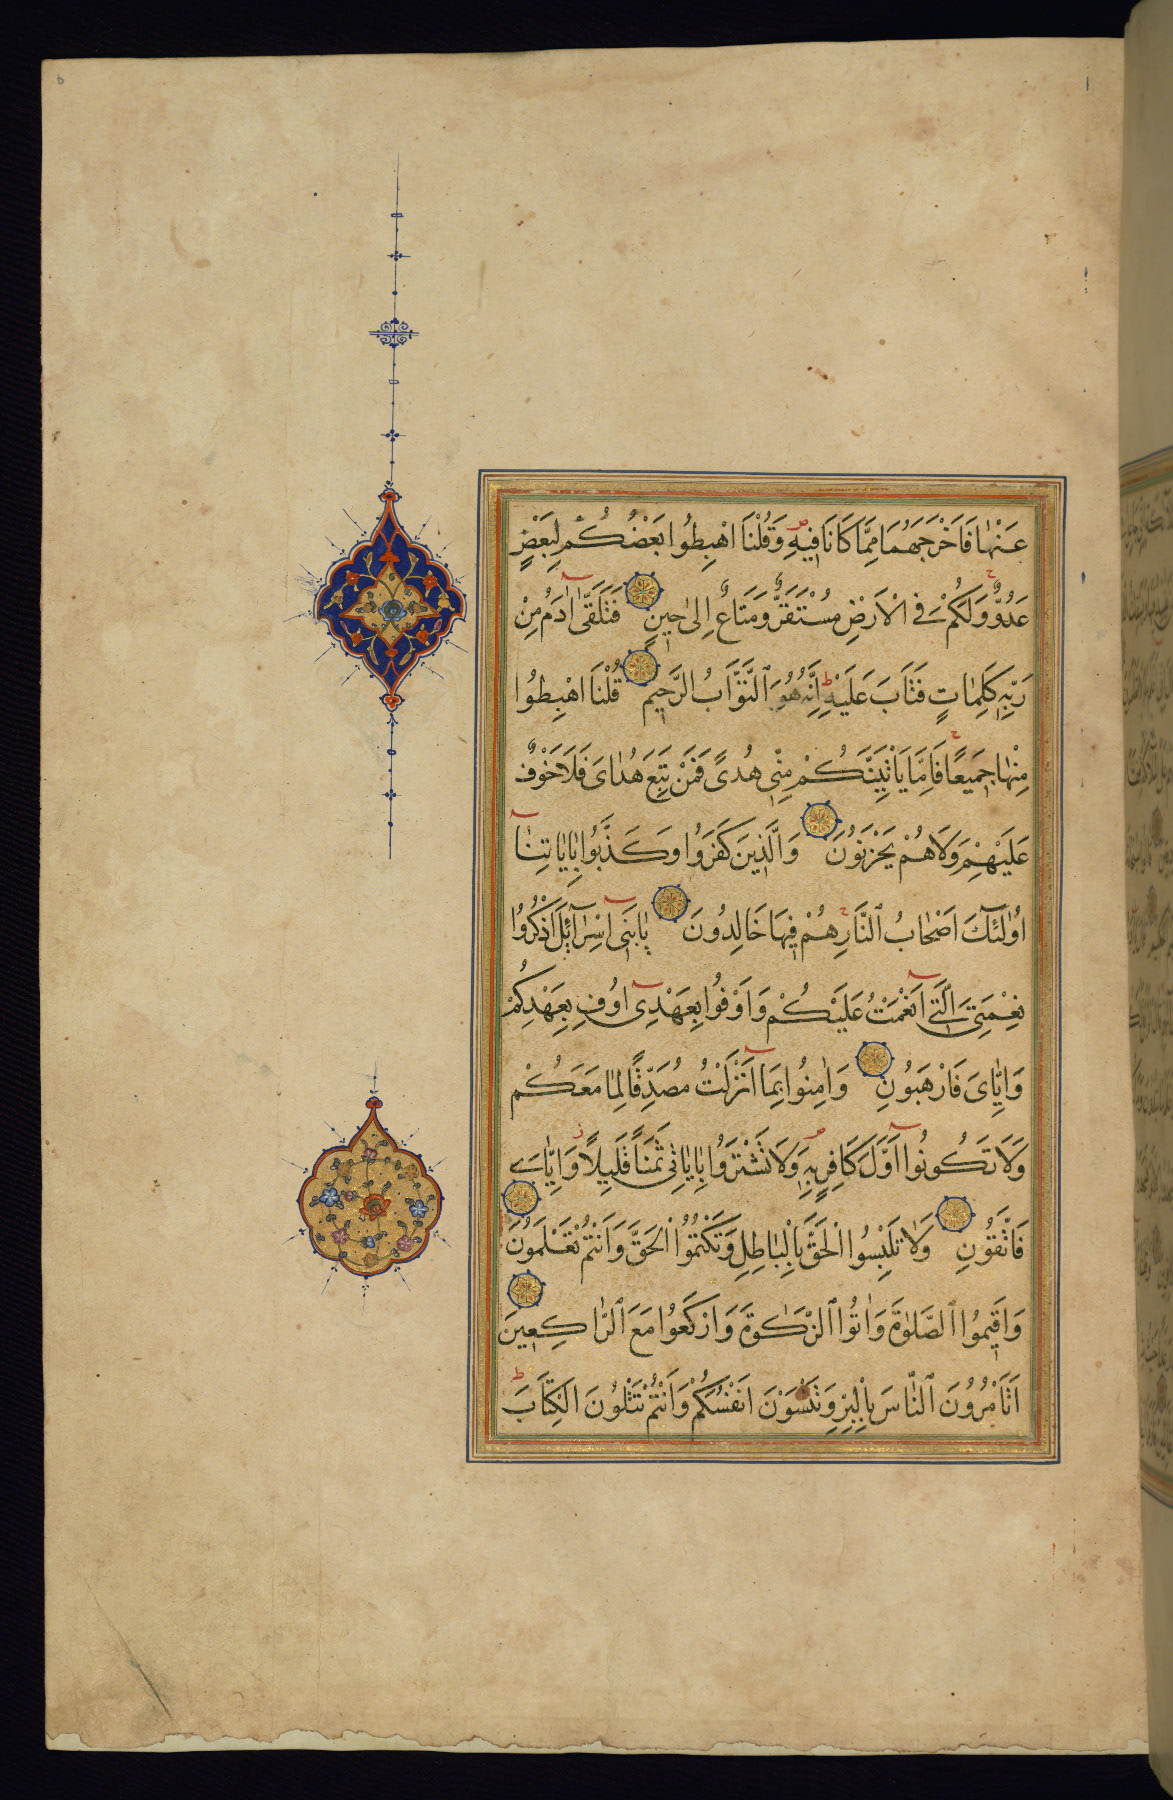 عَنْهٰا فَاَخْرَجَهُمَا مِمَّا كَانَا فِيهِ وَقُلْنَا اهْبِطُوا بَعْضُكُمْ لِبَعْضٍ
عَدُوٌّ وَلَكُمْ فِي الْاَرْضِ مُسْتَقَرٌّ وَمَتَاعٌ اِلىٰ حِينٍ فَتَلَقّٰى اٰدَمُ مِنْ
رَبِّهٖ كَلِمٰاتٍ فَتَابَ عَلَيْهِ اِنَّهُ هُوَ التَّوَّابُ الرَّحِيمُ قُلْنَا اهْبِطُوا
مِنْهٰا جَمِيعًا فَاِمَّا يَاْتِيَنَّكُمْ مِنِّي هُدىً فَمَنْ تَبِعَ هُدٰاىَ فَلَا خَوْفٌ
عَلَيْهِمْ وَلَا هُمْ يَحْزَنُونَ وَالَّذِينَ كَفَرُوا وَكَذَّبُوا بِاٰيٰاتِنٰا
اُولٰئِكَ اَصْحٰابُ النَّارِ هُمْ فِيهَا خَالِدُونَ يٰابَنِي اِسْرٰآئِلَ اذْكُرُوا
نِعْمَتِيَ الَّتِي اَنْعَمْتُ عَلَيْكُمْ وَاَوْفُوا بِعَهْدِي اُوفِ بِعَهْدِكُمْ
وَاِيّٰاىَ فَارْهَبُونِ وَاٰمِنُوا بِمَا اَنْزَلْتُ مُصَدِّقًا لِمٰا مَعَكُمْ
وَلَا تَكُونُوا اَوَّلَ كَافِرٍ بِهٖ وَلَا تَشْتَرُوا بِاٰيٰاتِي ثَمَنًا قَلِيلًا وَاِيّٰاىَ
فَاتَّقُونِ وَلَا تَلْبِسُوا الْحَقَّ بِالْبٰاطِلِ وَتَكْتُمُوا الْحَقَّ وَاَنْتُمْ تَعْلَمُونَ
وَاَقِيمُوا الصَّلٰوةَ وَاٰتُوا الزَّكٰوةَ وَارْكَعُوا مَعَ الرّٰاكِعِينَ
اَتَاْمُرُونَ النّٰاسَ بِالْبِرِّ وَتَنْسَوْنَ اَنْفُسَكُمْ وَاَنْتُمْ تَتْلُونَ الْكِتَابَ